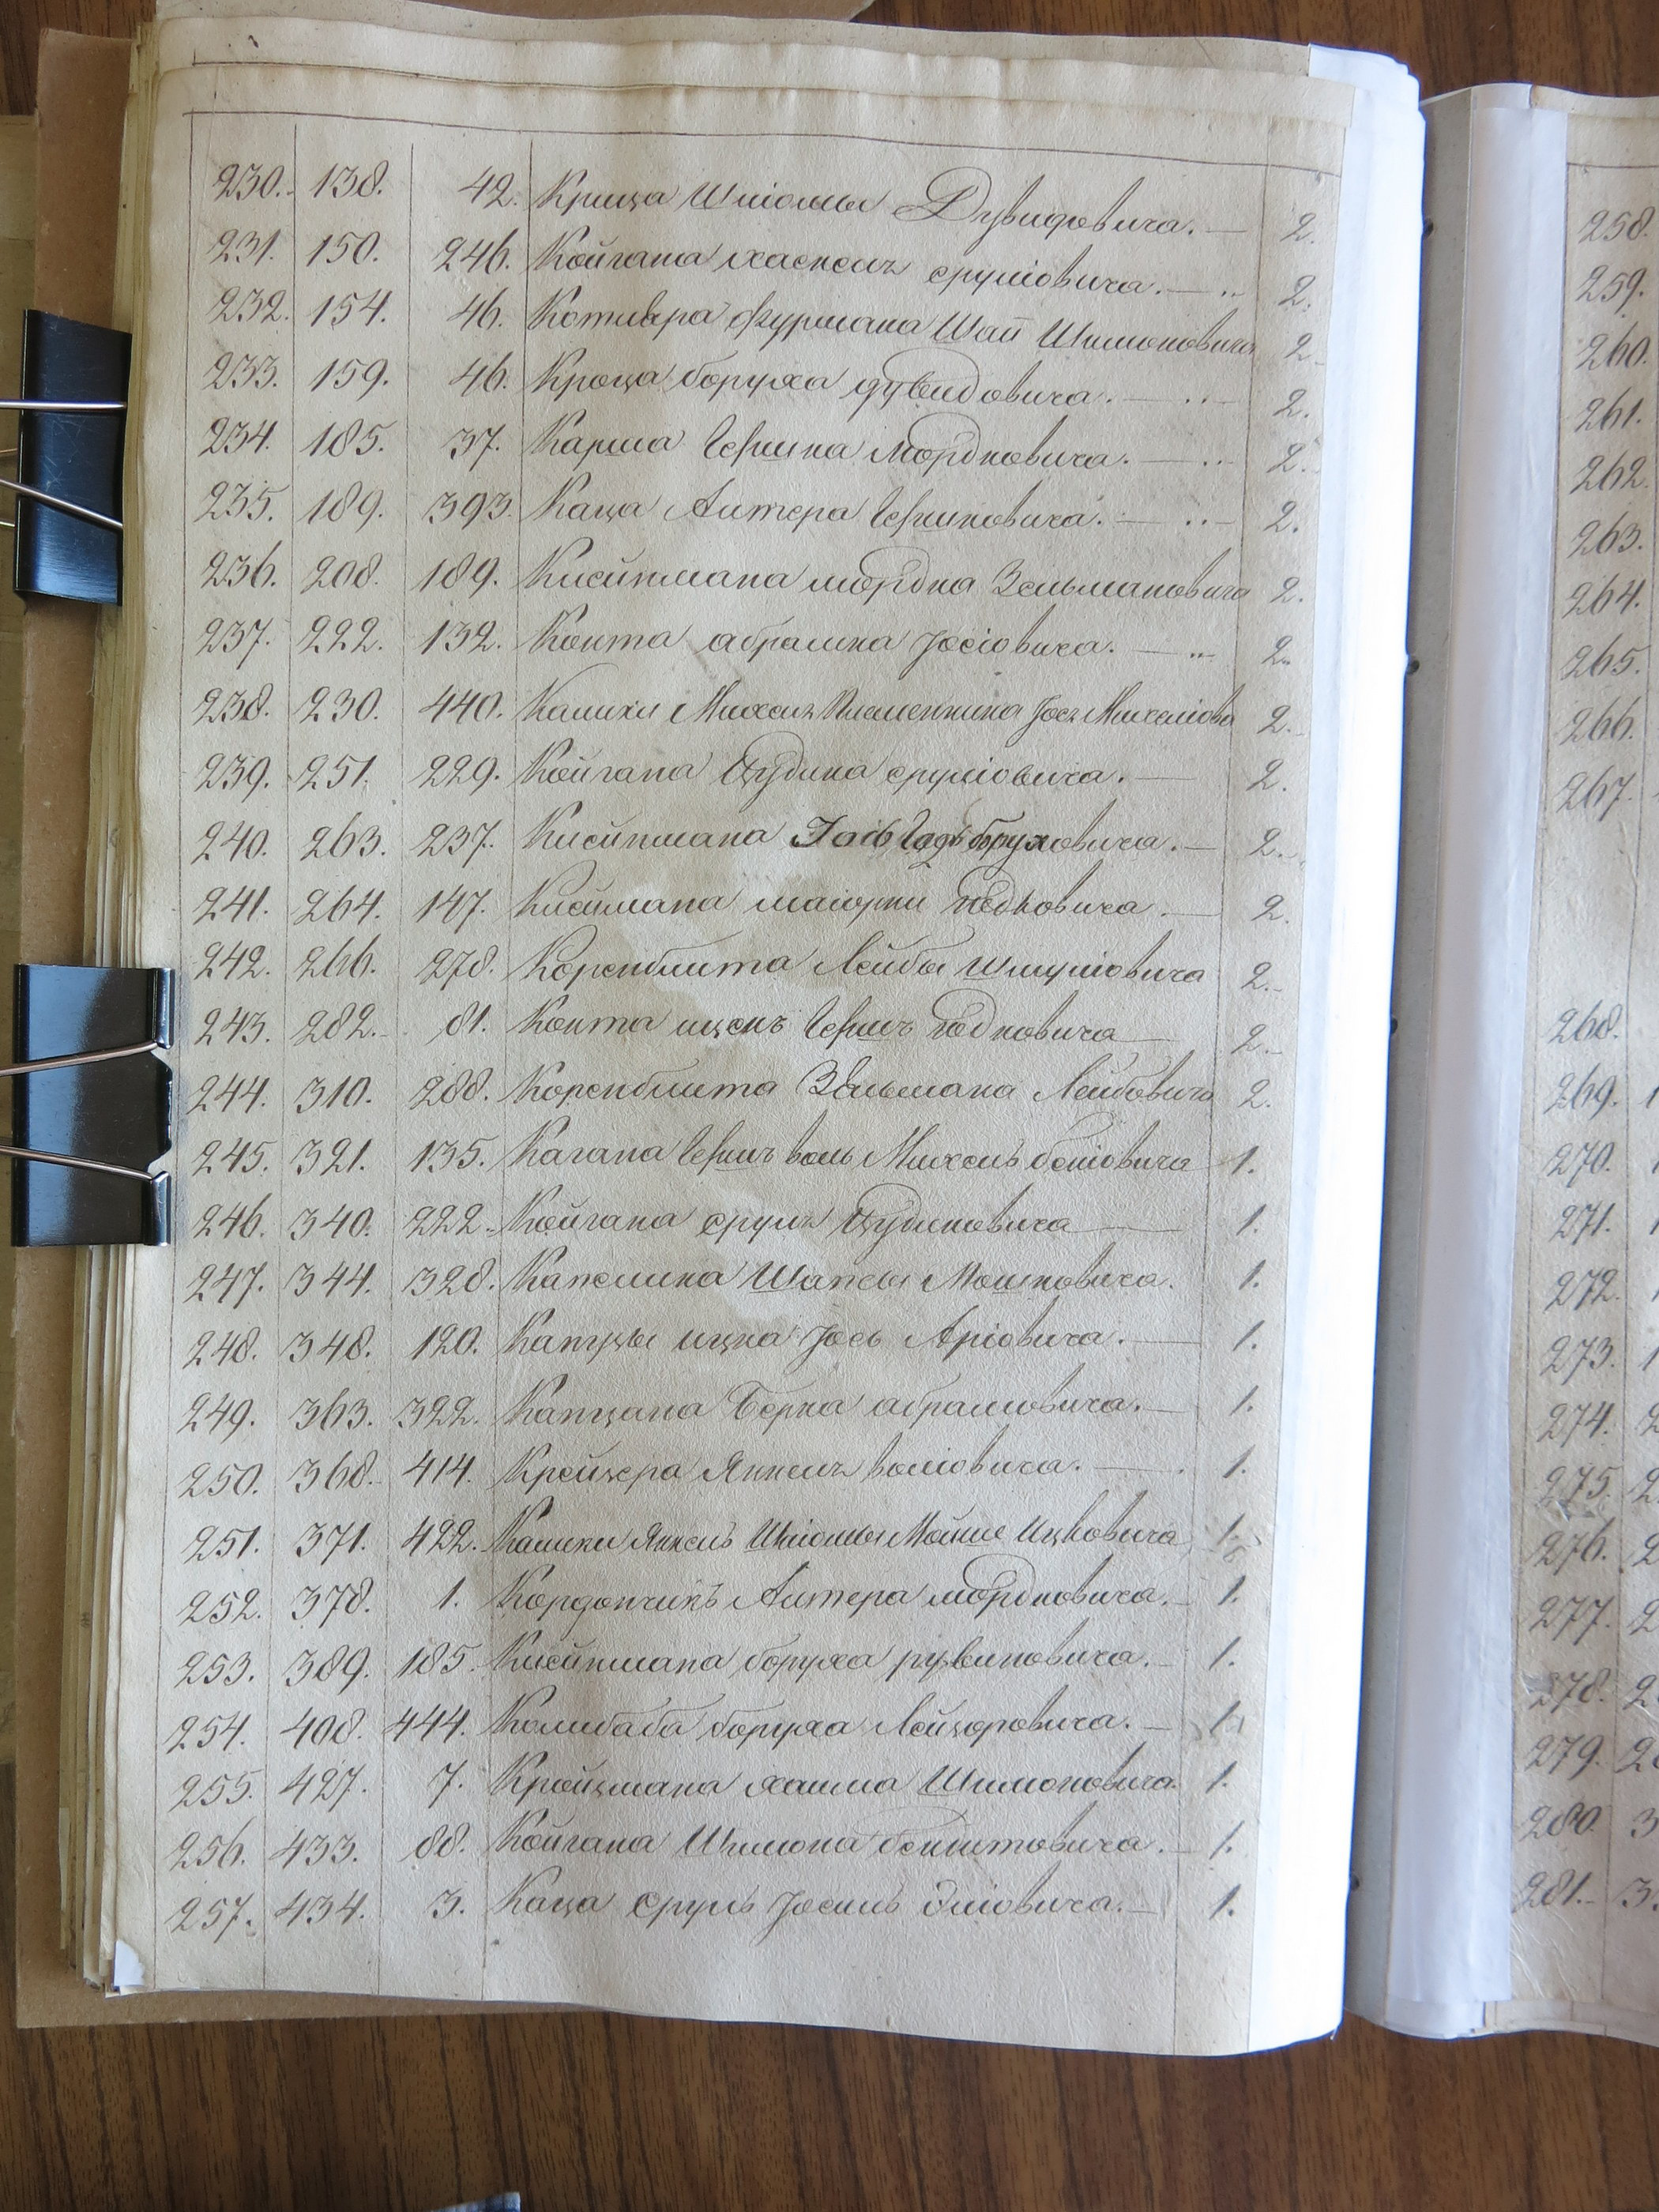 230. 138. 42. Крища Шліомы Дувидовича. — 2.
231. 150. 246. Койгана хаскель сруліовича. — 2.
232. 154. 46. Котляра фурмана Шаи Шимоновича 2.
233. 159. 46. Кроца боруха дувидовича. — 2.
234. 185. 37. Карша Гершка Мордковича. — 2.
235. 189. 393. Каца Алтера Гершковича. — 2.
236. 208. 189. мордка Зельмановича 2.
237. 222. 132. абрамка Јосіовича. — 2.
238. 230. 440. Михель Племенника Јось Михеліова 2.
239. 251. 229. Койгана сруліовича. — 2.
240. 263. 237. боруховича. — 2.
241. 264. 147. маіорки — 2.
242. 266. 278. Коренблита Лейбы Шмуліовича 2.
243. 282. 81. ицекъ Гершъ 2.
244. 310. 288. Коренблита Зельмана Лейбовича 2.
245. 321. 135. Кагана Гершъ воль Михель беніовича 1.
246. 340. 222. Койгана сруль — 1.
247. 344. 328. Капелика Шапсы Мошковича. 1.
248. 348. 120. ицка Јось Аріовича. — 1.
249. 363. 322. Капцана Берка абрамовича. — 1.
250. 368. 414. Крейцера Янкель воліовича. — 1.
251. 371. 422. Янкель Шліомы Мойше Ицковича 1.
252. 378. 1. Кордончикъ Алтера мордковича. 1.
253. 389. 185. боруха рувиновича. — 1.
254. 408. 444. Колибаба боруха Лейзоровича. — 1.
255. 427. 7. Кройцмана хаима Шимоновича. 1.
256. 433. 88. Койгана Шимона — 1.
257. 434. 3. Каца сруль Јосель Эліовича. — 1.
258.
259.
260.
261.
262.
263.
264.
265.
266.
267.
268.
269.
270.
271.
272.
273.
274.
275.
276.
277.
278.
279.
280.
281.